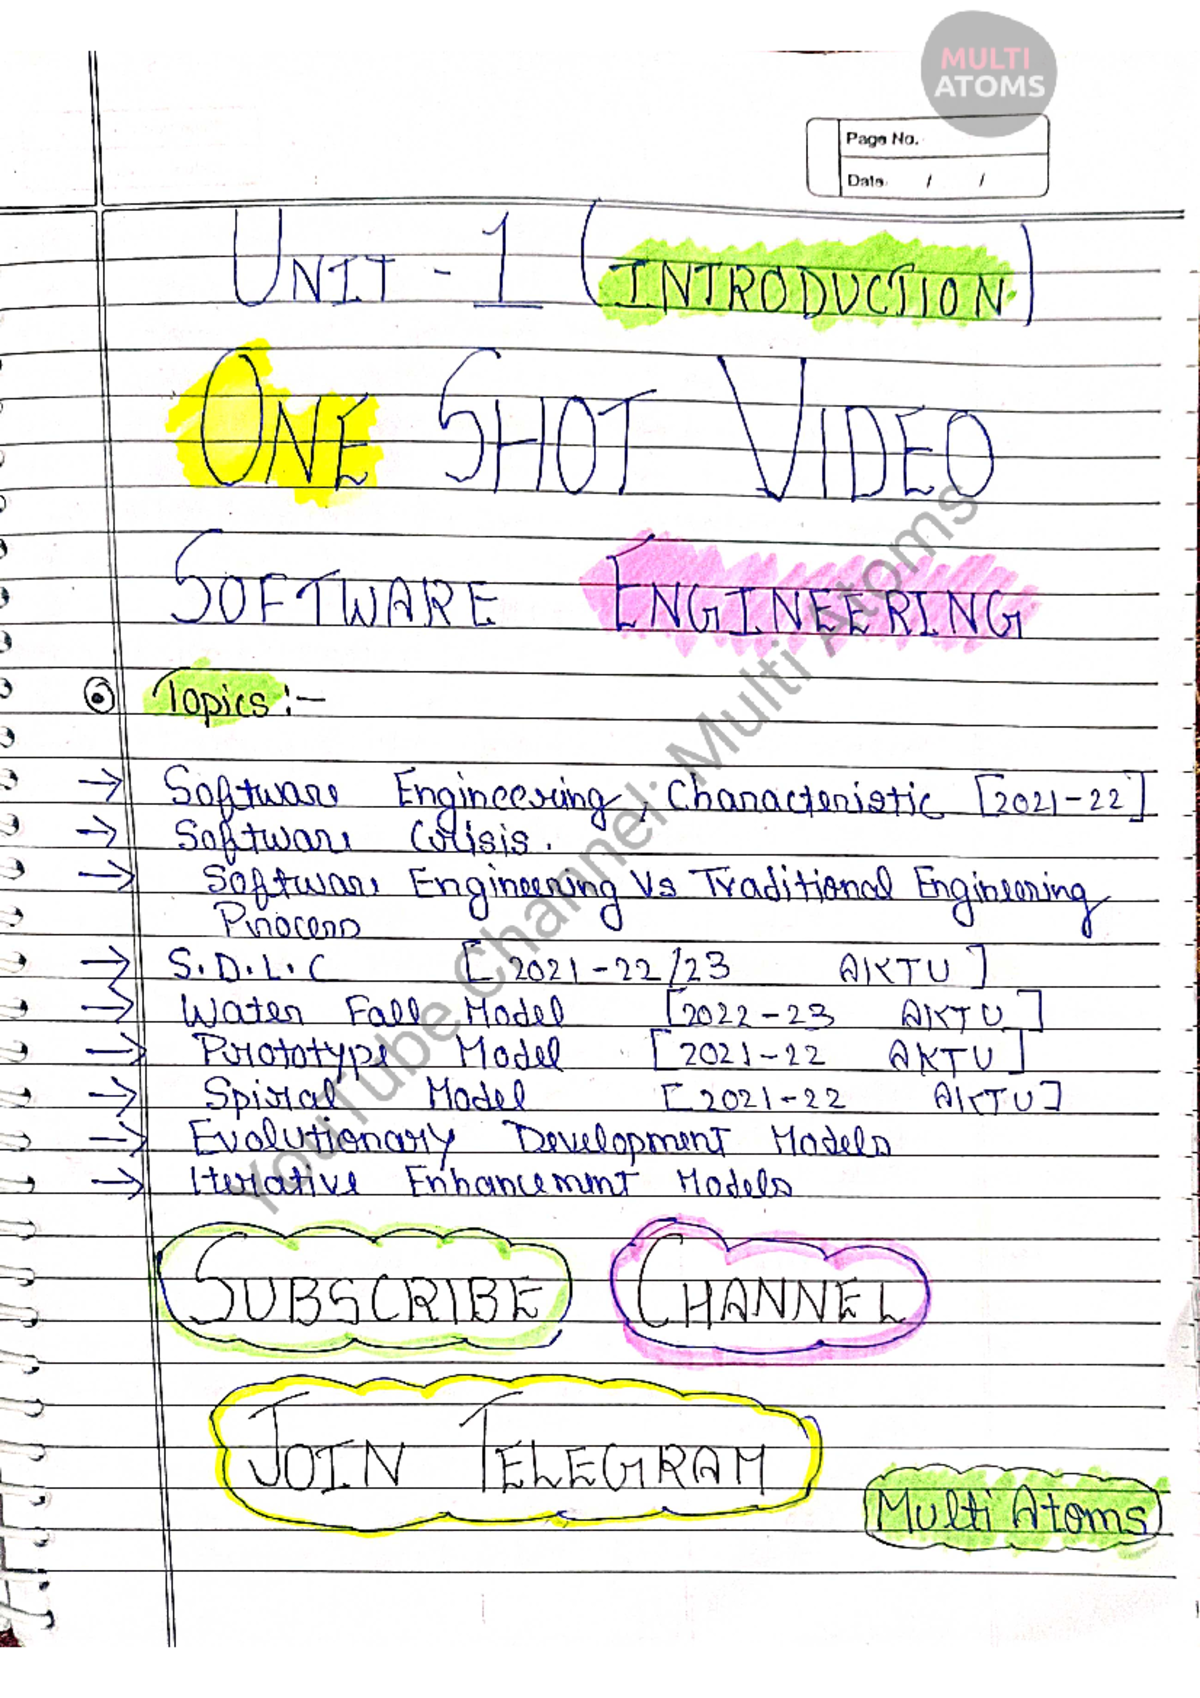 MULTI
ATOMS
Page No.
Date / /
UNIT - 1 (INTRODUCTION)
ONE SHOT VIDEO
SOFTWARE ENGINEERING
Topics :-
→ Software Engineering, Characteristic [2021-22]
→ Software Crisis.
→ Software Engineering Vs Traditional Engineering
Process
→ S.D.L.C [2021-22/23 AKTU]
→ Water Fall Model [2022-23 AKTU]
→ Prototype Model [2021-22 AKTU]
→ Spiral Model [2021-22 AKTU]
→ Evolutionary Development Models
→ Iterative Enhancement Models
SUBSCRIBE CHANNEL
JOIN TELEGRAM
Multi Atoms
YouTube Channel: Multi Atoms